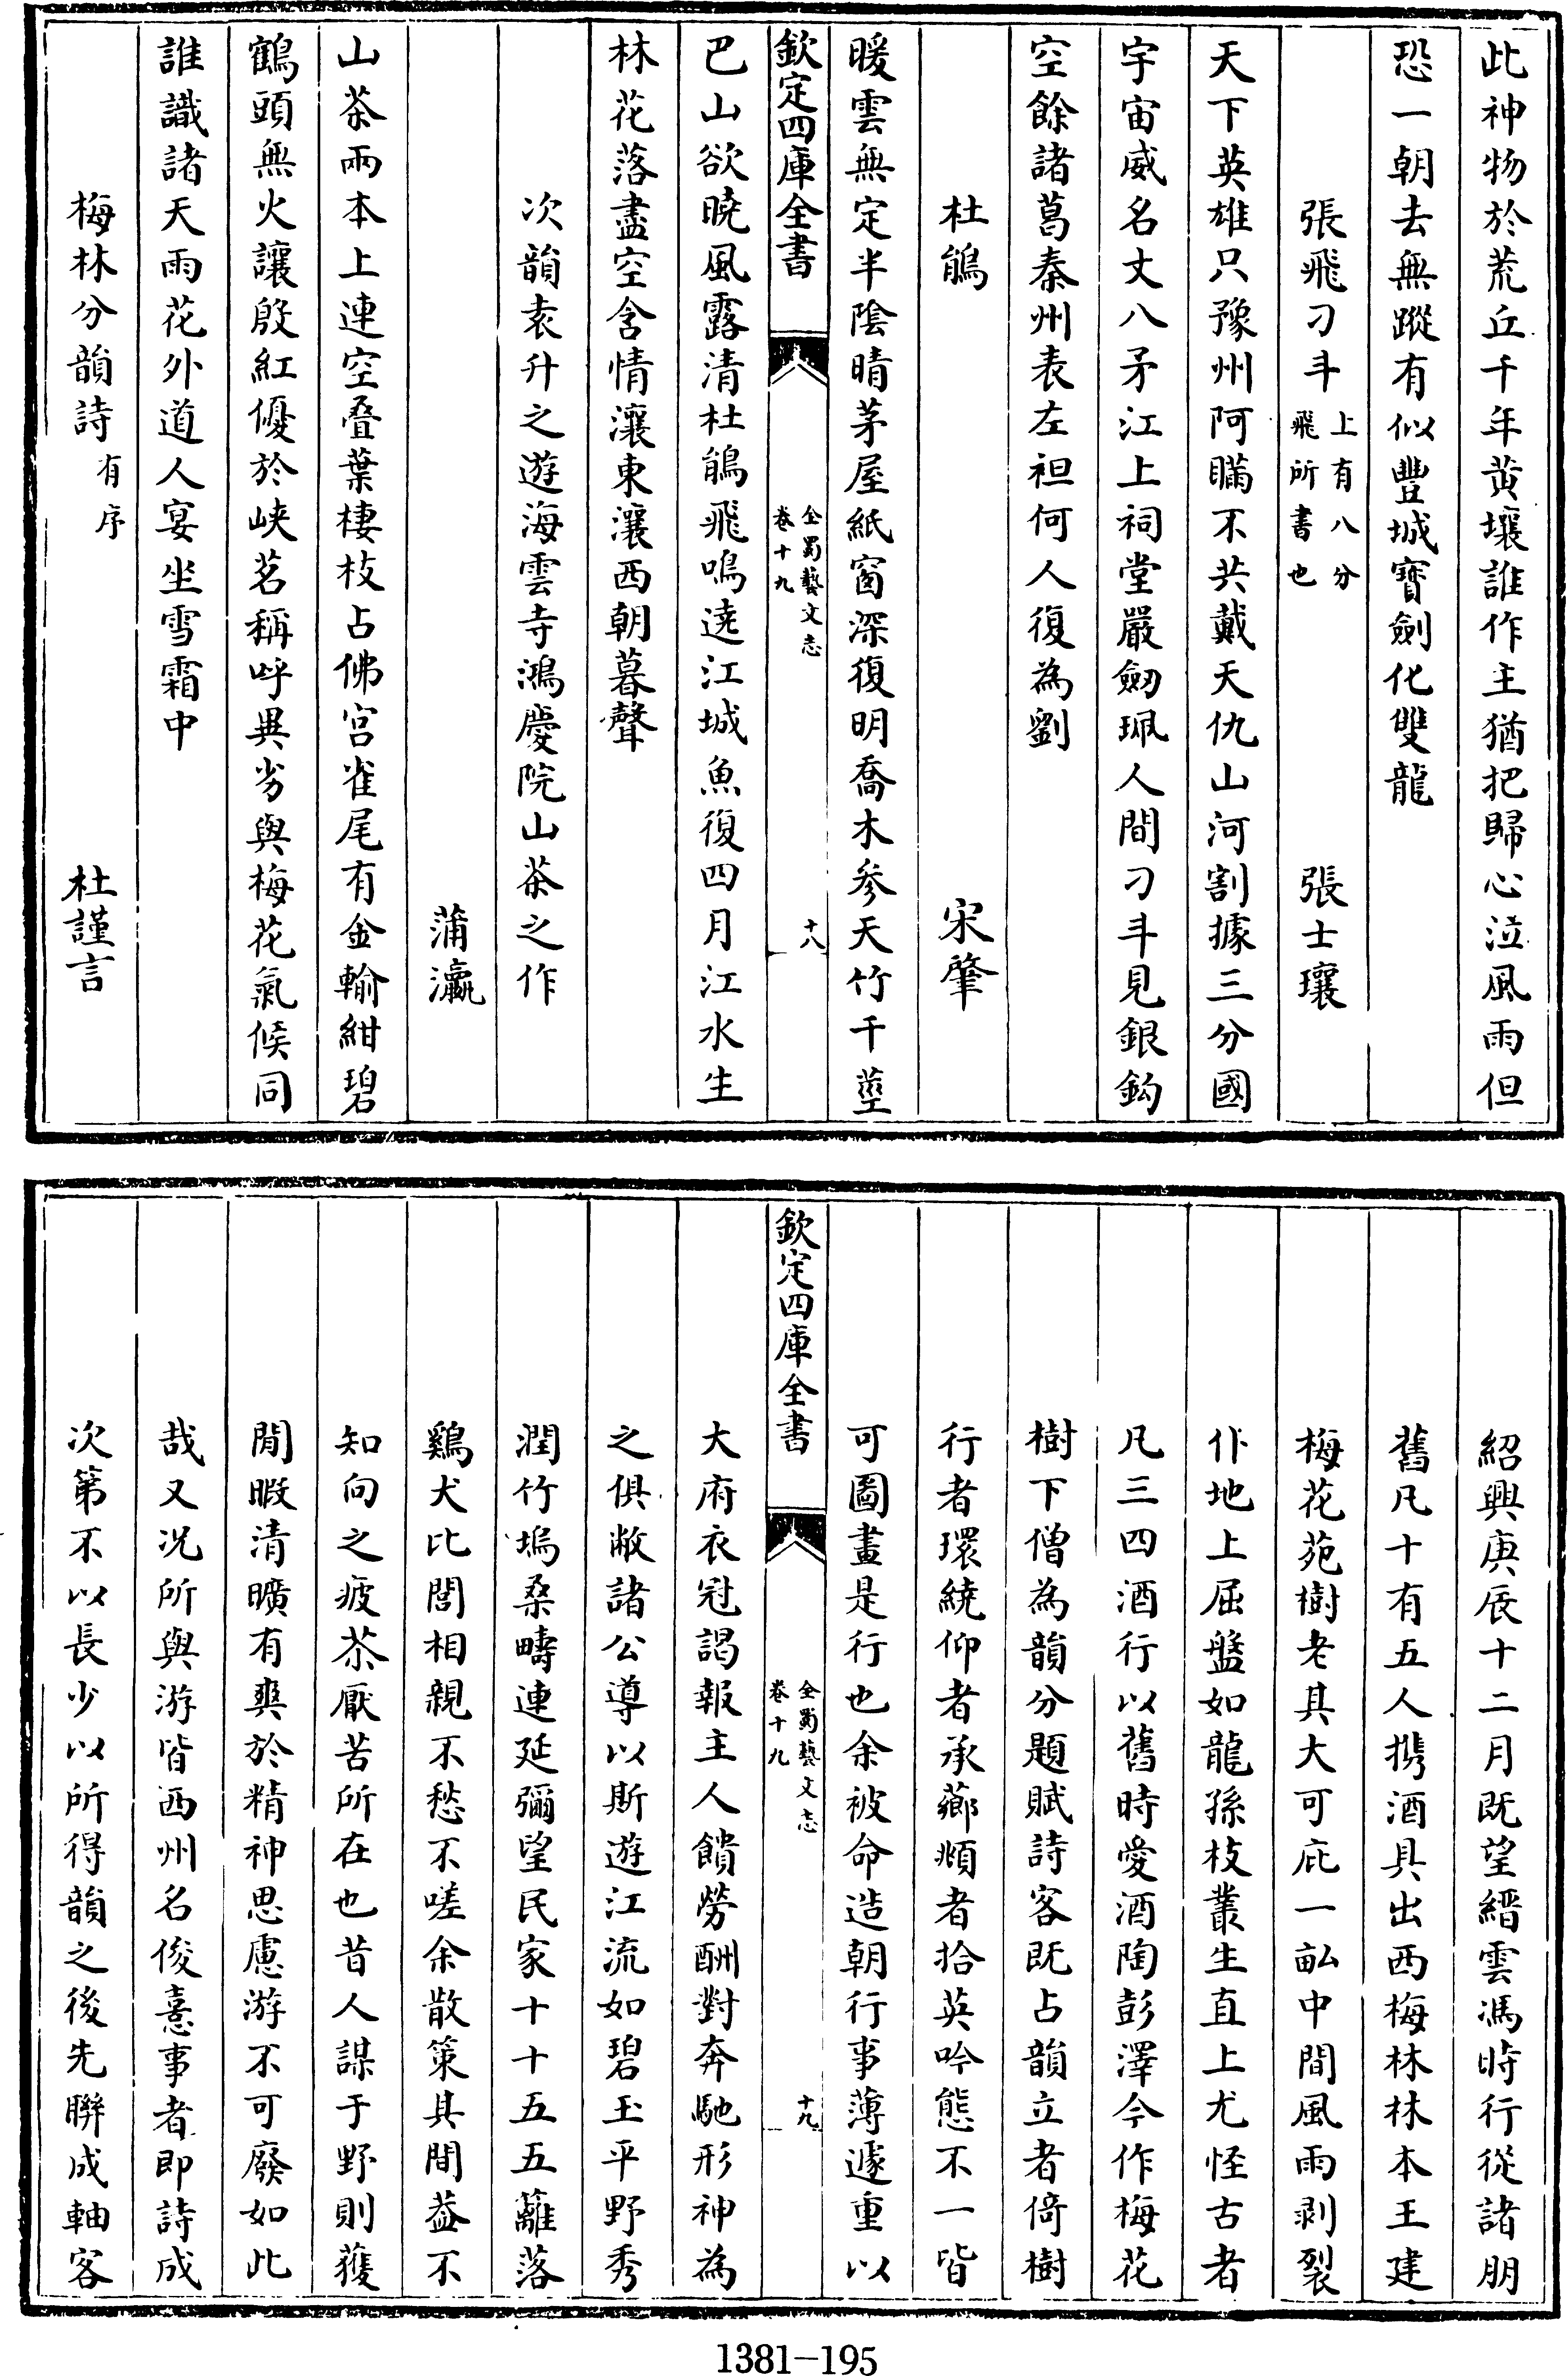 此神物於荒丘千年黄壤誰作主猶把歸心泣風雨但
恐一朝去無蹤有似豐城寶劍化雙龍
張飛刁斗 上有八分飛所書也 張士瓌
天下英雄只豫州阿瞞不共戴天仇山河割據三分國
宇宙威名丈八矛江上祠堂嚴劒珮人間刁斗見銀鈎
空餘諸葛秦州表左袒何人復為劉
杜鵑 宋肇
暖雲無定半陰晴茅屋紙窗深復明喬木參天竹千莖
欽定四庫全書 全蜀藝文志 卷十九 十八
巴山欲曉風露清杜鵑飛鳴遶江城魚復四月江水生
林花落盡空含情瀼東瀼西朝暮聲
次韻袁升之遊海雲寺鴻慶院山茶之作
蒲瀛
山茶兩本上連空叠葉棲枝占佛宫雀尾有金輸紺碧
鶴頭無火讓殷紅優於峽茗稱呼異劣與梅花氣候同
誰識諸天雨花外道人宴坐雪霜中
梅林分韻詩 有序 杜謹言
紹興庚辰十二月既望縉雲馮時行從諸朋
舊凡十有五人攜酒具出西梅林林本王建
梅花苑樹老其大可庇一畝中間風雨剥裂
仆地上屈盤如龍孫枝叢生直上尤怪古者
凡三四酒行以舊時愛酒陶彭澤今作梅花
樹下僧為韻分題賦詩客既占韻立者倚樹
行者環繞仰者承薌頫者拾英吟態不一皆
可圖畫是行也余被命造朝行事薄遽重以
欽定四庫全書 全蜀藝文志 卷十九 十九
大府衣冠謁報主人饋勞酬對奔馳形神為
之俱敝諸公導以斯遊江流如碧玉平野秀
潤竹塢桑疇連延彌望民家十十五五籬落
鷄犬比閭相親不愁不嗟余散策其間葢不
知向之疲苶厭苦所在也昔人謀于野則獲
閒暇清曠有爽於精神思慮游不可廢如此
哉又况所與游皆西州名俊憙事者即詩成
次第不以長少以所得韻之後先聨成軸客
1381-195